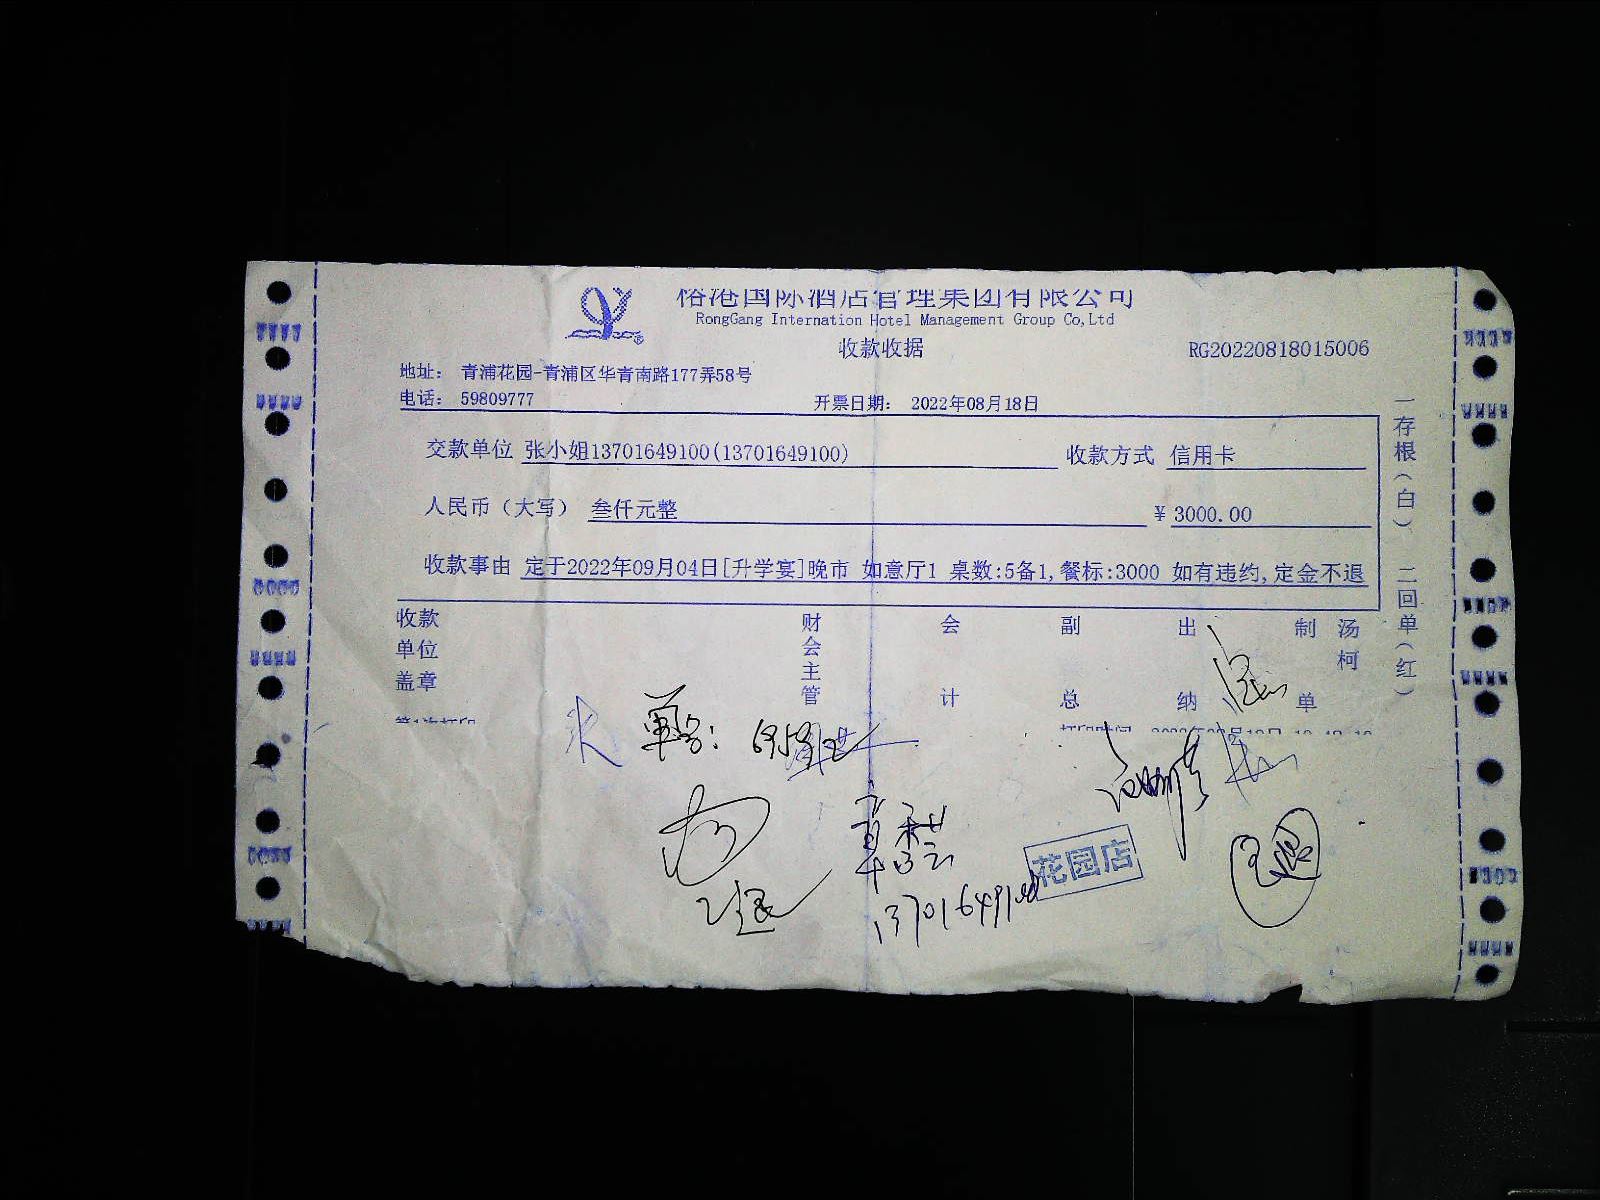 国际酒店管理集团有限公司
RongGang Internation Hotel Management Group Co,Ltd
收款收据
RG20220818015006
地址： 青浦花园-青浦区华青南路177弄58号
电话： 59809777
开票日期： 2022年08月18日
交款单位 张小姐13701649100(13701649100)
收款方式 信用卡
人民币（大写） 叁仟元整
¥ 3000.00
收款事由 定于2022年09月04日[升学宴]晚市 如意厅1 桌数:5备1,餐标:3000 如有违约,定金不退
一存根（白） 二回单（红）
收款单位盖章
财会主管
会计
副总
出纳
制单
汤柯
花园店
13701649100